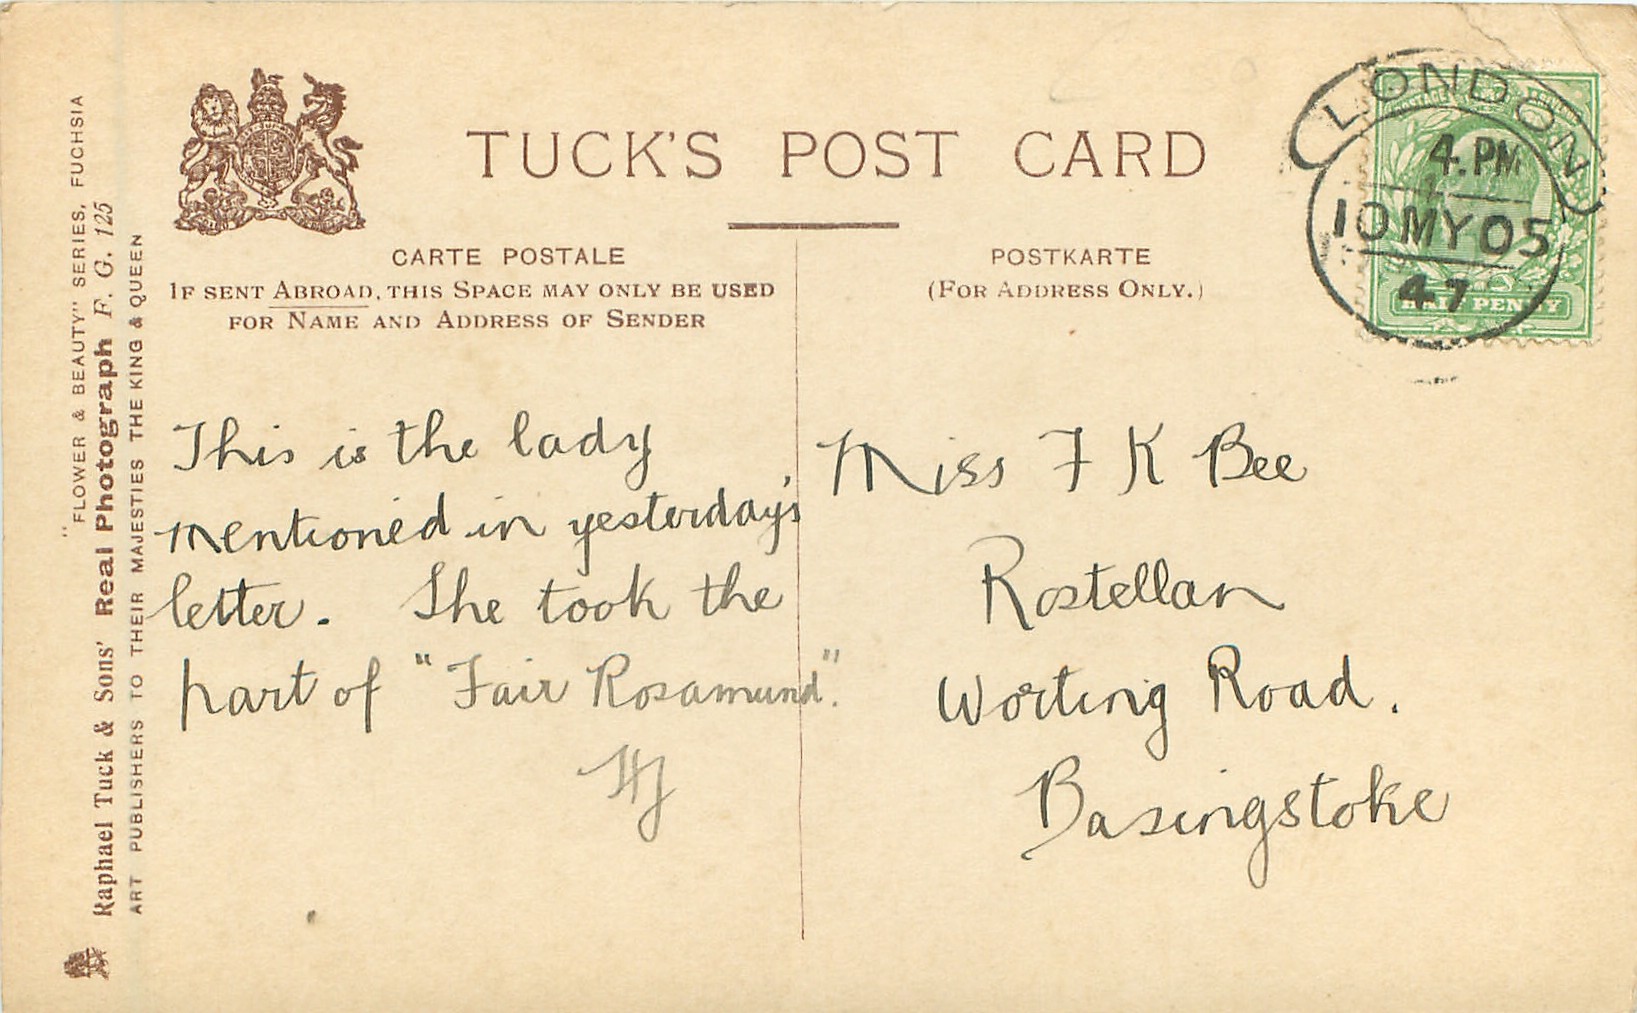 TUCK'S POST CARD
CARTE POSTALE
IF SENT ABROAD, THIS SPACE MAY ONLY BE USED
FOR NAME AND ADDRESS OF SENDER
POSTKARTE
(FOR ADDRESS ONLY.)
LONDON
4.PM
10 MY 05
47
HALF PENNY
This is the lady
mentioned in yesterday's
letter. She took the
part of "Fair Rosamund".
HJ
Miss F K Bee
Rostellan
Worting Road.
Basingstoke
"FLOWER & BEAUTY" SERIES, FUCHSIA
Raphael Tuck & Sons' Real Photograph F. G. 125
ART PUBLISHERS TO THEIR MAJESTIES THE KING & QUEEN